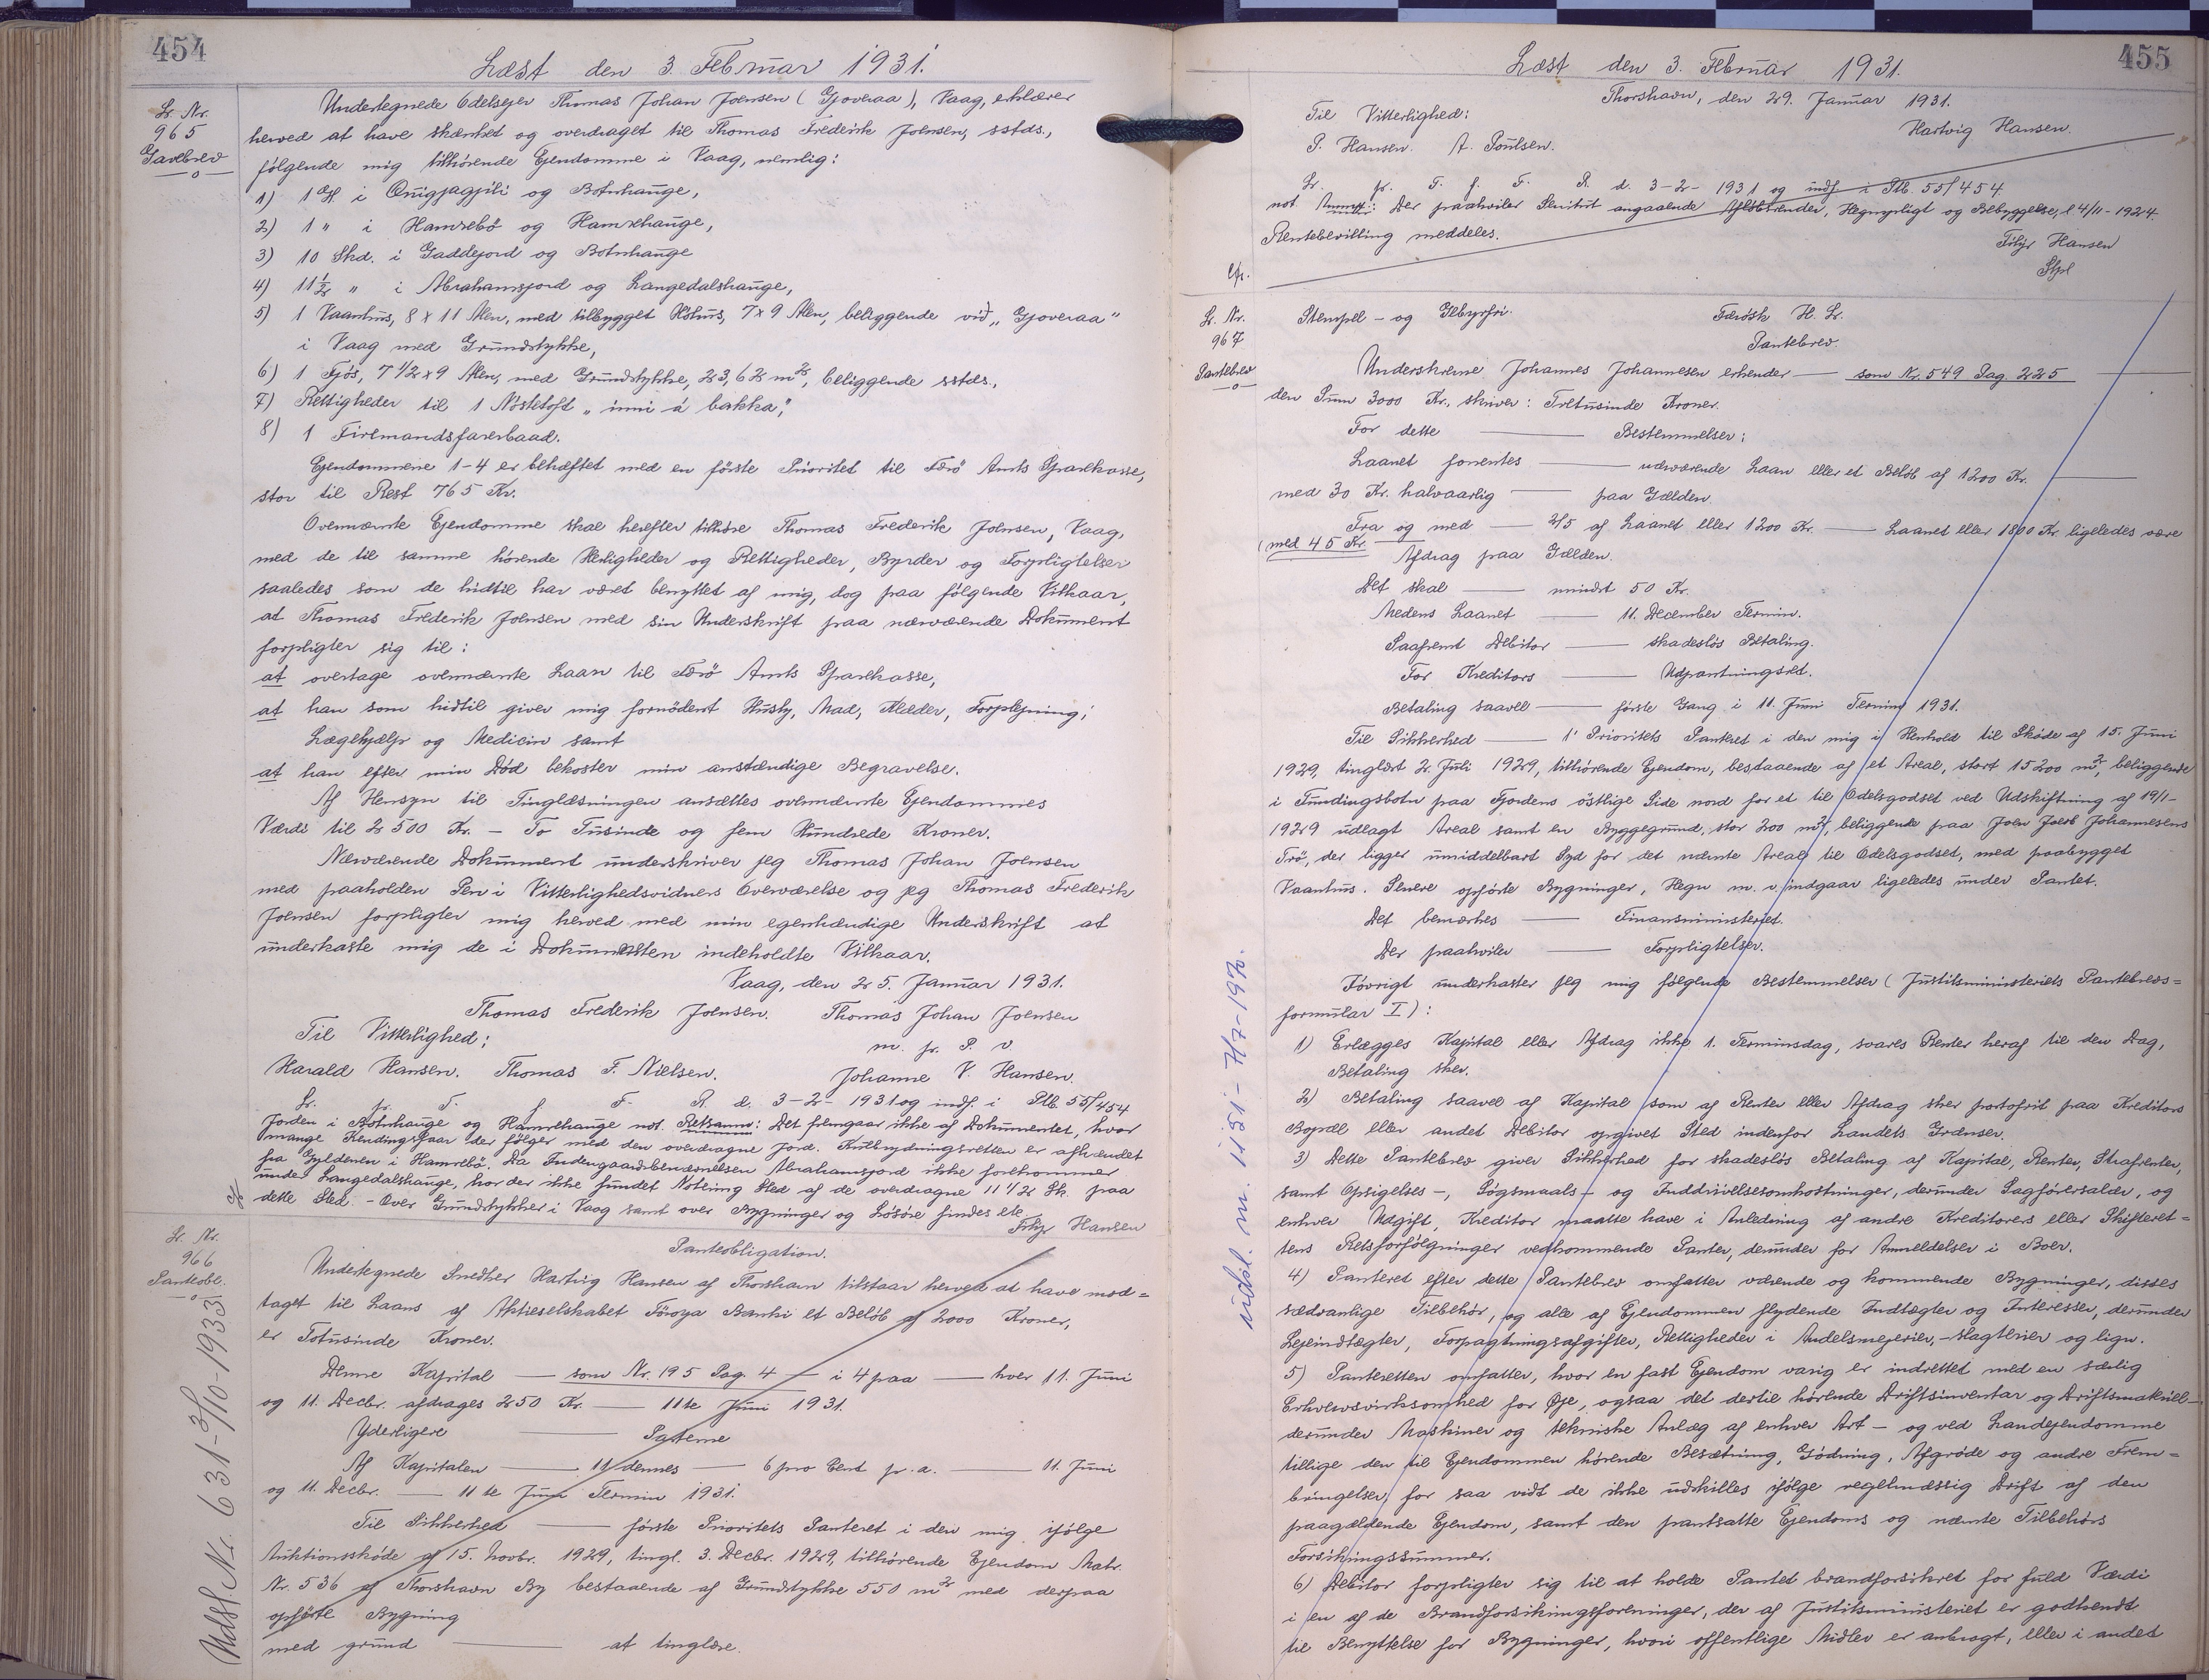 454
Læst den 3. Februar 1931.
Lr. Nr.
965
Gavebrev
Undertegnede Odelsejer Thomas Johan Joensen (Gjoveraa), Vaag, erklærer
herved at have skænket og overdraget til Thomas Frederik Joensen, sstds.,
følgende mig tilhørende Ejendomme i Vaag, nemlig:
1) 1 G. i Quigjagjili og Botnhauge,
2) 1 " i Hamrebö og Hamrehauge,
3) 10 Skd. i Gaddejord og Botnhauge
4) 11½ " i Abrahamsjord og Langedalshauge,
5) 1 Vaanhus, 8 x 11 Alen, med tilbygget Uthus, 7 x 9 Alen, beliggende við "Gjoveraa"
i Vaag med Grundstykke,
6) 1 Fjós, 7 1/2 x 9 Alen, med Grundstykke, 23,62 m², beliggende sstds.,
7) Rettigheder til 1 Nöstetoft "inni á bakka",
8) 1 Firemandsfarerbaad.
Ejendommene 1-4 er behæftet med en første Prioritet til Færö Amts Sparekasse,
stor til Rest 765 Kr.
Ovennævnte Ejendomme skal herefter tilhøre Thomas Frederik Joensen, Vaag,
med de til samme hørende Herligheder og Rettigheder, Byrder og Forpligtelser
saaledes som de hidtil har været benyttet af mig, dog paa følgende Vilkaar,
at Thomas Frederik Joensen med sin Underskrift paa nærværende Dokument
forpligter sig til:
at overtage ovennævnte Laan til Færö Amts Sparekasse,
at han som hidtil giver mig fornødent Husly, Mad, Klæder, Forplejning,
Lægehjælp og Medicin samt
at han efter min Død bekoster min anstændige Begravelse.
Af Hensyn til Tinglæsningen ansættes ovennævnte Ejendommes
Værdi til 2500 Kr. - To Tusinde og fem Hundrede Kroner.
Nærværende Dokument underskriver jeg Thomas Johan Joensen
med paaholden Pen i Vitterlighedsvidners Overværelse og jeg Thomas Frederik
Joensen forpligter mig herved med min egenhændige Underskrift at
underkaste mig de i Dokumenten indeholdte Vilkaar.
Vaag, den 25. Januar 1931.
Thomas Frederik Joensen. Thomas Johan Joensen
Til Vitterlighed: m. p. P. v
Harald Hansen. Thomas F. Nielsen. Johanne V. Hansen.
Lr. p. T. f. F. R. d. 3-2-1931 og indf. i Ptb. 55/454
Jorden i Botnhauge og Hamrehauge not. Retsanm: Det fremgaar ikke af Dokumentet, hvor
mange Kendingsfaar der følger med den overdragne Jord. Kulbrydningsretten er afhændet
fra Gyldenen i Hamrebö. Da Indengaardsbenævnelsen Abrahamsjord ikke forekommer
under Langedalshauge, har der ikke fundet Notering Sted af de overdragne 11 1/2 Sk. paa
dette Sted. - Over Grundstykker i Vaag samt over Bygninger og Løsøre findes etc.
Filip Hansen
Lr. Nr.
966
Panteobl.
Udsl. Nr. 631 - 3/10-1933.
Panteobligation.
Undertegnede Snedker Hartvig Hansen af Thorshavn tilstaar herved at have mod=
taget til Laans af Aktieselskabet Föroya Banki et Beløb af 2000 Kroner,
er Totusinde Kroner.
Denne Kapital — som Nr. 195 Pag. 4 — i 4 paa — hver 11. Juni
og 11. Decbr. afdrages 250 Kr. — 11te Juni 1931.
Yderligere — Pasterne
Af Kapitalen — 11/ dennes — 6 pro Cent p. a. — 11. Juni
og 11. Decbr. — 11te Juni Termin 1931.
Til Sikkerhed — første Prioritets Panteret i den mig ifølge
Auktionsskøde af 15. Novbr. 1929, tingl. 3. Decbr. 1929, tilhørende Ejendom Matr.
Nr. 536 af Thorshavn By bestaaende af Grundstykke 550 m² med derpaa
opførte Bygning
med grund — at tinglæse.
455
Læst den 3. Februar 1931.
Thorshavn, den 29. Januar 1931.
Til Vitterlighed: Hartvig Hansen.
P. Hansen. A. Poulsen.
Lr. p. T. f. F. R. d. 3-2-1931 og indf. i Ptb. 55/454
not. Anmk: Der paahviler Servitut angaaende Ildsbrænder, Hegnspligt og Bebyggelse, l. 4/11-1924.
Rentebevilling meddeles.
Filip Hansen
Lr. Nr.
967
Pantebrev
Stempel- og Gebyrfri. Færøsk H. Lr.
Pantebrev.
Underskrevne Johannes Johannesen erkender — som Nr. 549 Pag. 225
den Sum 3000 Kr., skriver: Tretusinde Kroner.
For dette — Bestemmelser:
Laanet forrentes — nærværende Laan eller et Beløb af 1200 Kr. —
med 30 Kr. halvaarlig — paa Gælden.
Fra og med — 2/5 af Laanet eller 1200 Kr. — Laanet eller 1800 Kr. ligeledes være
(med 45 Kr. — Afdrag paa Gælden.
Det skal — mindst 50 Kr.
Medens Laanet — 11. December Termin.
Saafremt Debitor — skadesløs Betaling.
For Kreditors — Udpantningsret.
Betaling saavel — første Gang i 11. Juni Termin 1931.
Til Sikkerhed — 1' Prioritets Panteret i den mig i Henhold til Skøde af 15. Juni
1929, tinglæst 2. Juli 1929, tilhørende Ejendom, bestaaende af et Areal, stort 15200 m², beliggende
i Fundingsbotn paa Fjordens østlige Side nord for et til Odelsgodset ved Udskiftning af 19/1-
1929 udlagt Areal samt en Byggegrund, stor 200 m², beliggende paa Joen Jacob Johannesens
Trö, der ligger umiddelbart Syd for det nævnte Areal til Odelsgodset, med paabygget
Vaanhus. Senere opførte Bygninger, Hegn m. v. indgaar ligeledes under Pantet.
Det bemærkes — Finansministeriet.
Der paahviler — Forpligtelser.
Iøvrigt underkaster jeg mig følgende Bestemmelser (Justitsministeriets Pantebrevs=
formular I):
1) Erlægges Kapital eller Afdrag ikke 1. Terminsdag, svares Renter heraf til den Dag,
Betaling sker.
2) Betaling saavel af Kapital som af Renter eller Afdrag sker portofrit paa Kreditors
Bopæl eller andet Debitor opgivet Sted indenfor Landets Grænser.
3) Dette Pantebrev giver Sikkerhed for skadesløs Betaling af Kapital, Renter, Strafrenter,
samt Opsigelses-, Søgsmaals- og Inddrivelsesomkostninger, derunder Sagførersalær, og
enhver Udgift, Kreditor maatte have i Anledning af andre Kreditorers eller Skifteret=
tens Retsforfølgninger vedkommende Pantet, derunder for Anmeldelser i Boer.
4) Panteret efter dette Pantebrev omfatter værende og kommende Bygninger, disses
sædvanlige Tilbehør, og alle af Ejendommen flydende Indtægter og Interesser, derunder
Lejeindtægter, Forpagtningsafgifter, Rettigheder i Andelsmejerier, -slagterier og lign.
5) Panteretten omfatter, hvor en fast Ejendom varig er indrettet med en særlig
Erhvervsvirksomhed for Øje, ogsaa det dertil hørende Driftsinventar og Driftsmateriel -
derunder Maskiner og tekniske Anlæg af enhver Art - og ved Landejendomme
tillige den til Ejendommen hørende Besætning, Gødning, Afgrøde og andre Frem=
bringelser, for saa vidt de ikke udskilles ifølge regelmæssig Drift af den
paagældende Ejendom, samt den pantsatte Ejendoms og nævnte Tilbehørs
Forsikringssummer.
6) Debitor forpligter sig til at holde Pantet brandforsikret for fuld Værdi
i en af de Brandforsikringsforeninger, der af Justitsministeriet er godkendt
til Benyttelse for Bygninger, hvori offentlige Midler er anbragt, eller i andet